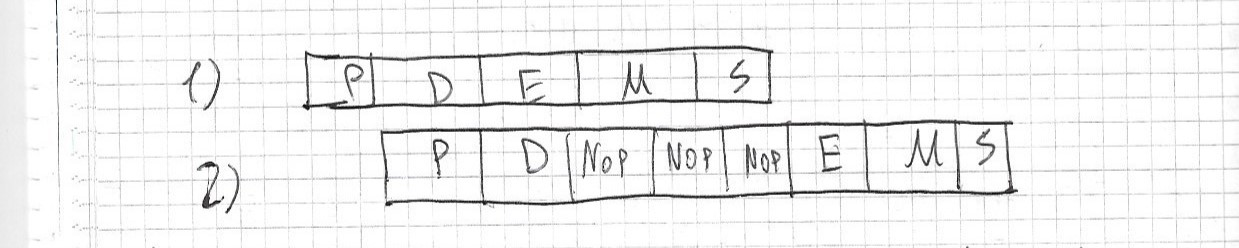 1) P D E M S
2) P D NOP NOP NOP E M S